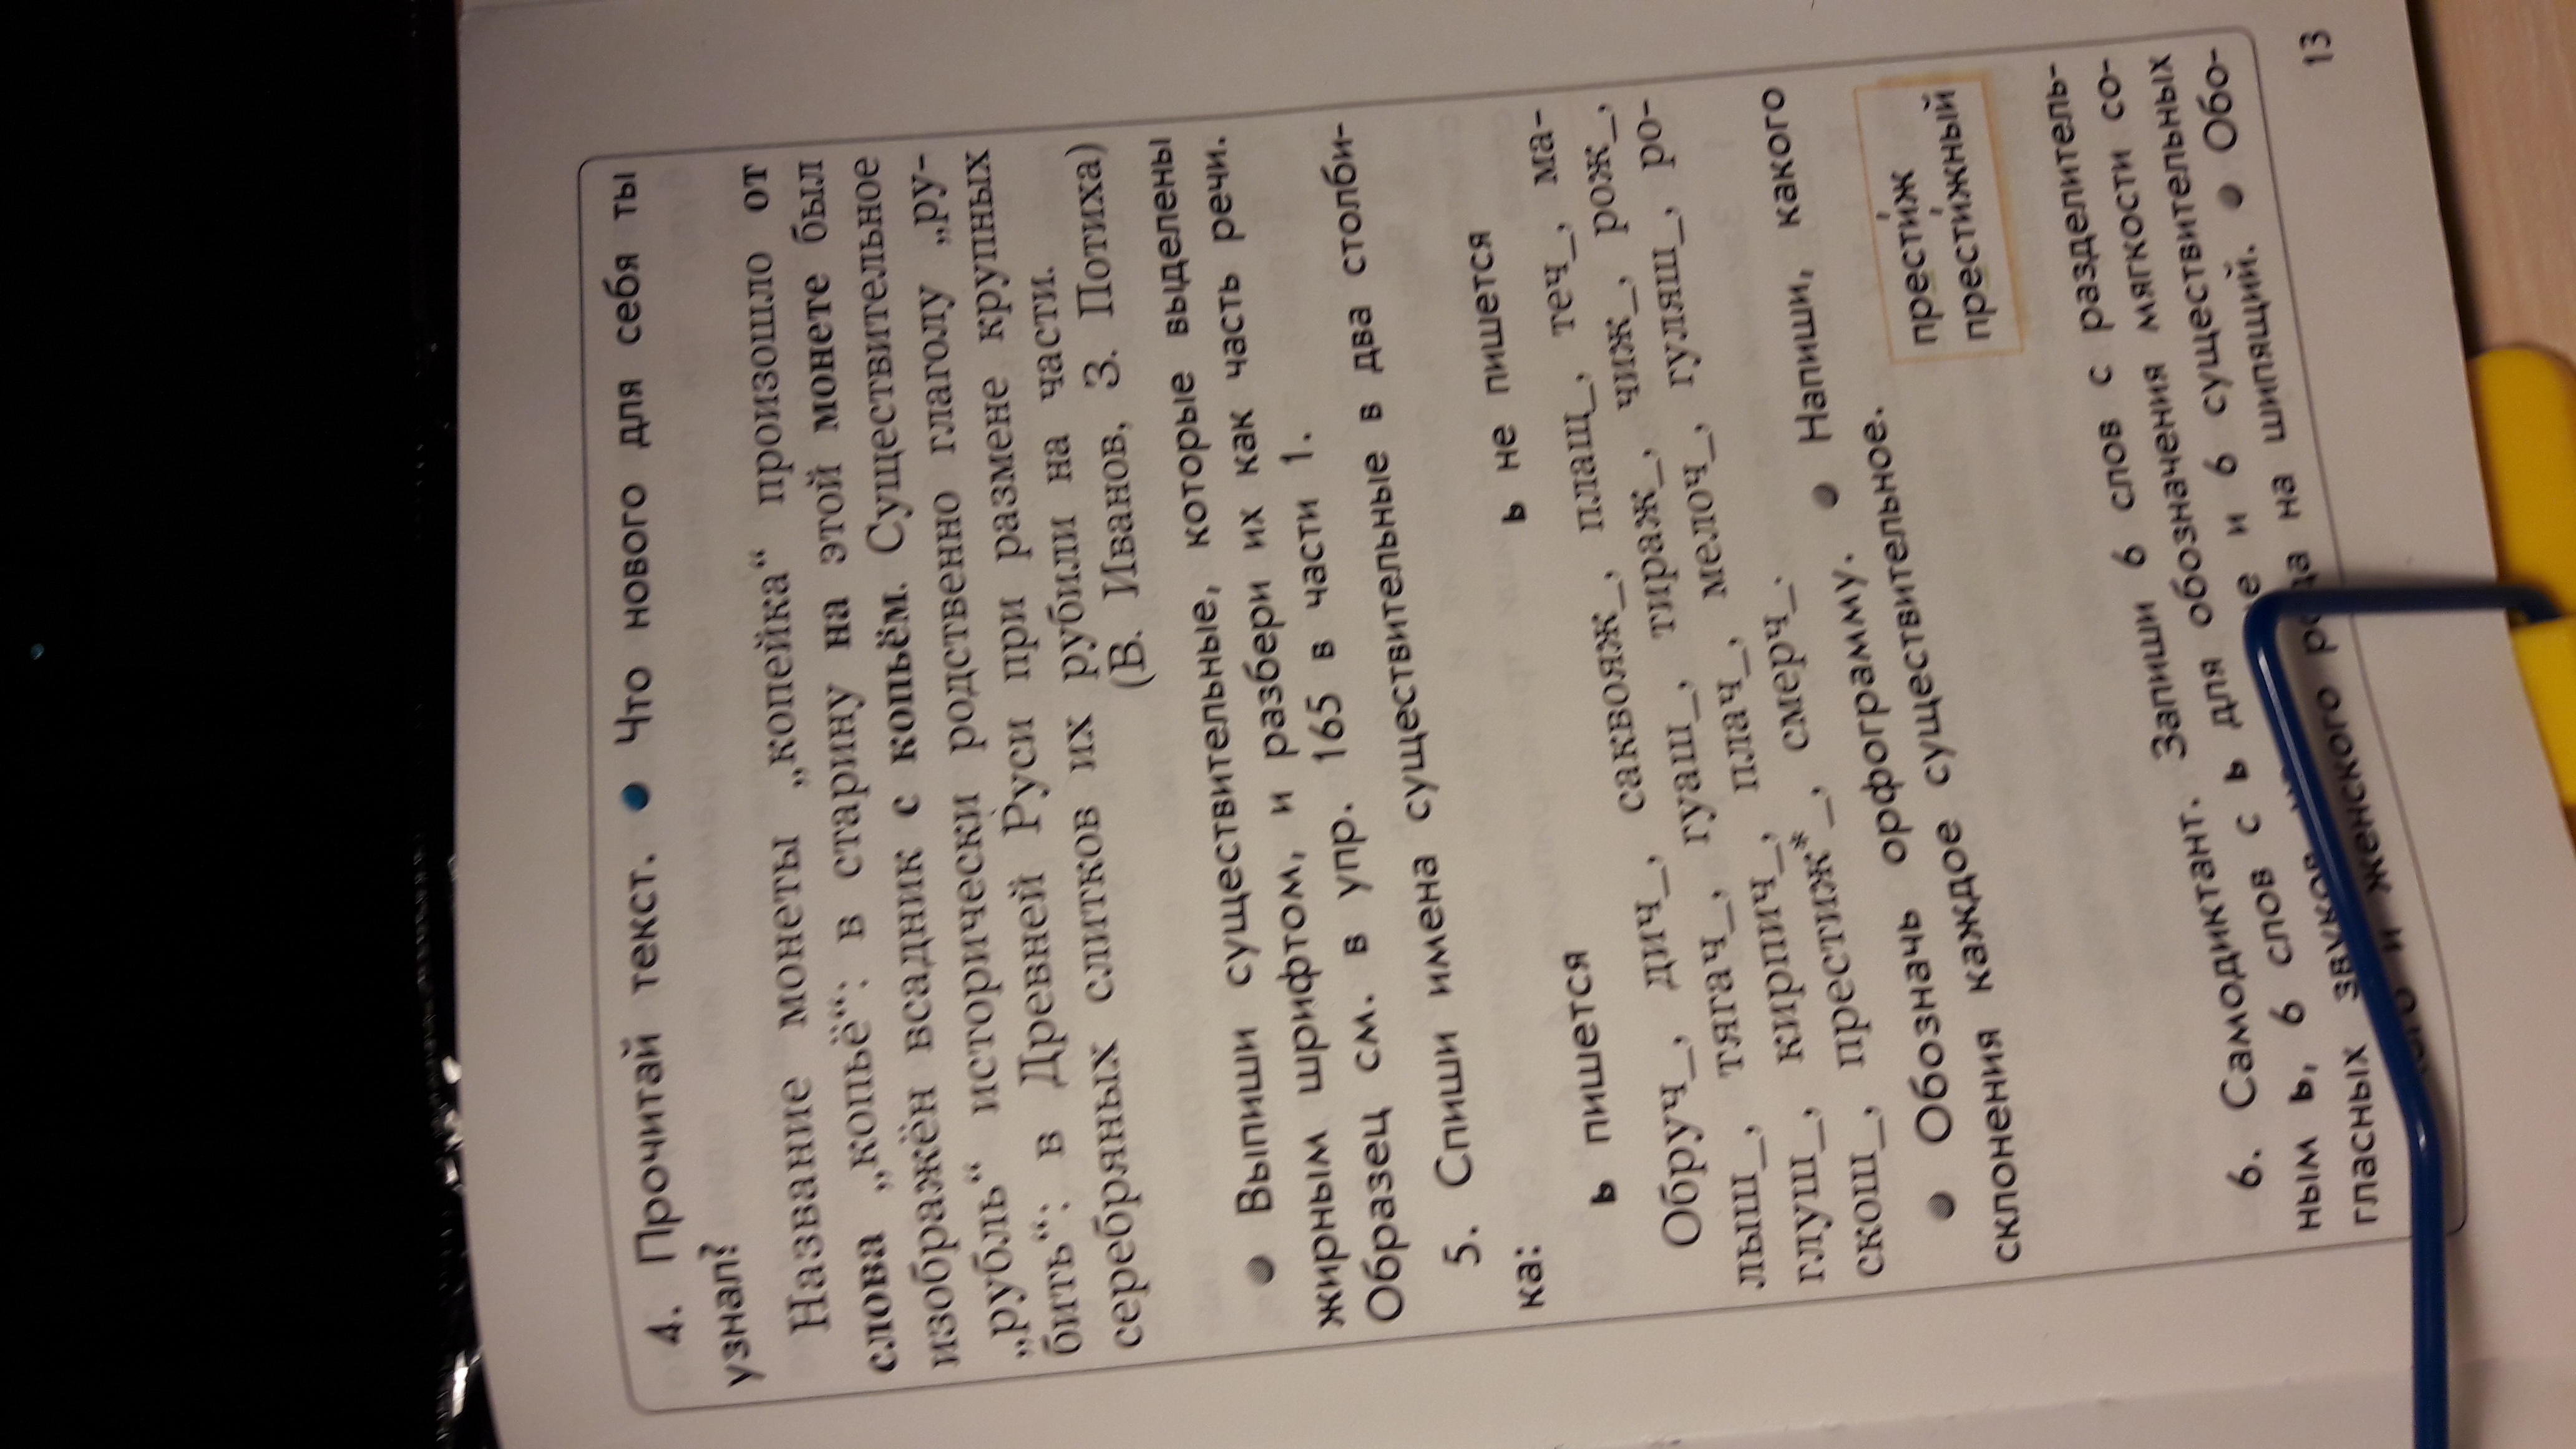 4. Прочитай текст. ● Что нового для себя ты
узнал?
Название монеты „копейка“ произошло от
слова „копьё“: в старину на этой монете был
изображён всадник с копьём. Существительное
„рубль“ исторически родственно глаголу „ру-
бить“: в Древней Руси при размене крупных
серебряных слитков их рубили на части.
(В. Иванов, З. Потиха)
● Выпиши существительные, которые выделены
жирным шрифтом, и разбери их как часть речи.
Образец см. в упр. 165 в части 1.
5. Спиши имена существительные в два столби-
ка:
ь пишется ь не пишется
Обруч_, дич_, саквояж_, плащ_, теч_, ма-
лыш_, тягач_, гуашь_, тираж_, чиж_, рож_,
глуш_, кирпич_, плач_, мелоч_, гуляш_, ро-
скош_, престиж*_, смерч_.
● Обозначь орфограмму. ● Напиши, какого
склонения каждое существительное.
прести́ж
прести́жный
6. Самодиктант. Запиши 6 слов с разделитель-
ным ь, 6 слов с ь для обозначения мягкости со-
гласных звуков и 6 существительных
и женского рода на шипящий. ● Обо-
13